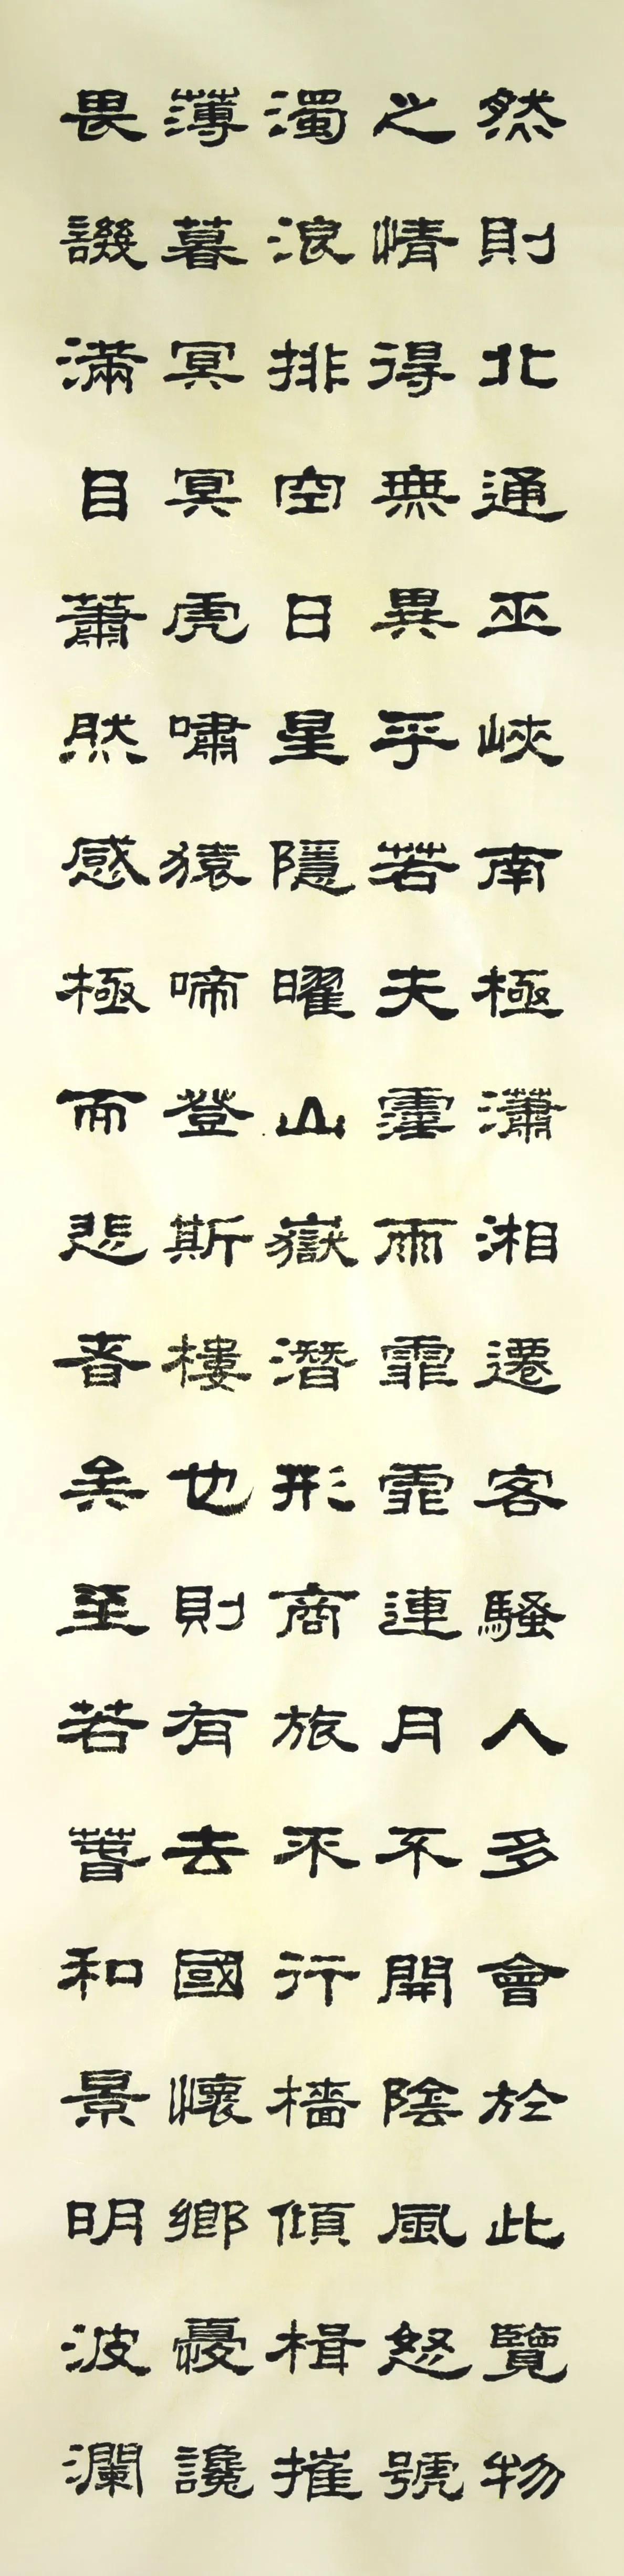 然則北通巫峽南極瀟湘遷客騷人多會於此覽物
之情得無異乎若夫霪雨霏霏連月不開陰風怒號
濁浪排空日星隱曜山嶽潛形商旅不行檣傾楫摧
薄暮冥冥虎嘯猿啼登斯樓也則有去國懷鄉憂讒
畏譏滿目蕭然感極而悲者矣至若萅和景明波瀾